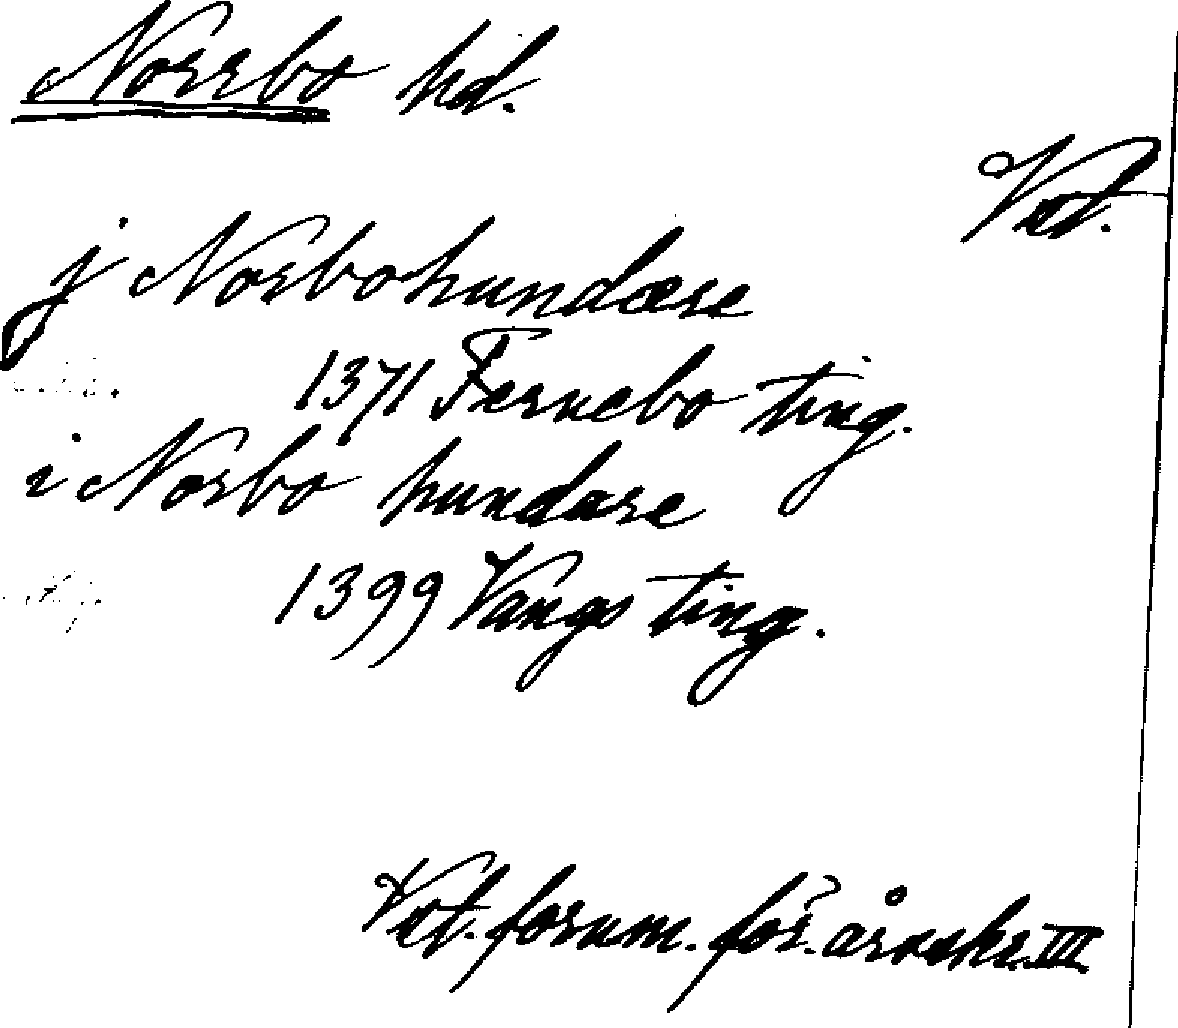 Norrbo hd.
Vstm.
j Norbohundære
1371 Fernebo ting.
i Norbo hundare
1399 Vangs ting.
Vst. fornm. för. årsskr. III